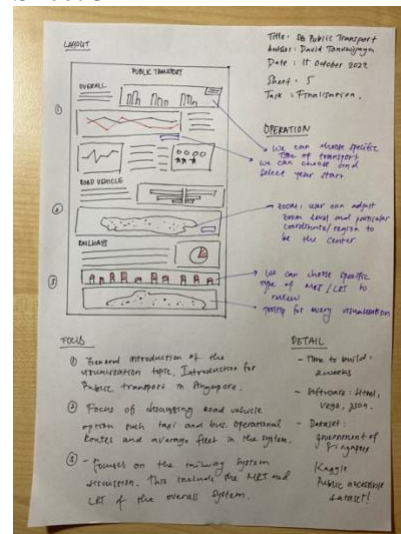 LAYOUT
Title: SG Public Transport
Author: David
Date: 15 October 2022
Sheet: 5
Task: Finalisation.
PUBLIC TRANSPORT
OVERALL
①
ROAD VEHICLE
②
RAILWAYS
③
OPERATION
we can choose specific
type of transport
we can choose and
select year start
zoom: user can adjust
zoom level and particular
coordinate/region to
be the center
we can choose specific
type of MRT/LRT to
review
tooltip for every visualisation
FOCUS
① General introduction of the
visualisation topic. Introduction for
Public transport in Singapore.
② Focus of discussing road vehicle
option such taxi and bus operational
and average fleet in the system.
③ - Focuses on the railway system
discussion. This include the MRT and
LRT of the overall system.
DETAIL
- Time to build:
2 weeks
- Software: Html,
vega, json.
- Dataset:
government of
Singapore
Kaggle
Public accessible
dataset!